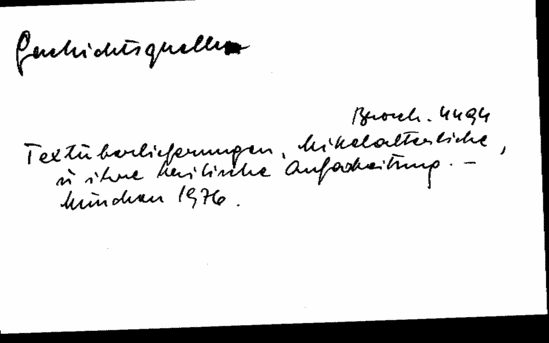 Geschichtsquellen
Brosch. 4494
Textüberlieferungen, Mittelalterliche,
u ihre kritische Aufarbeitung. –
München 1976.